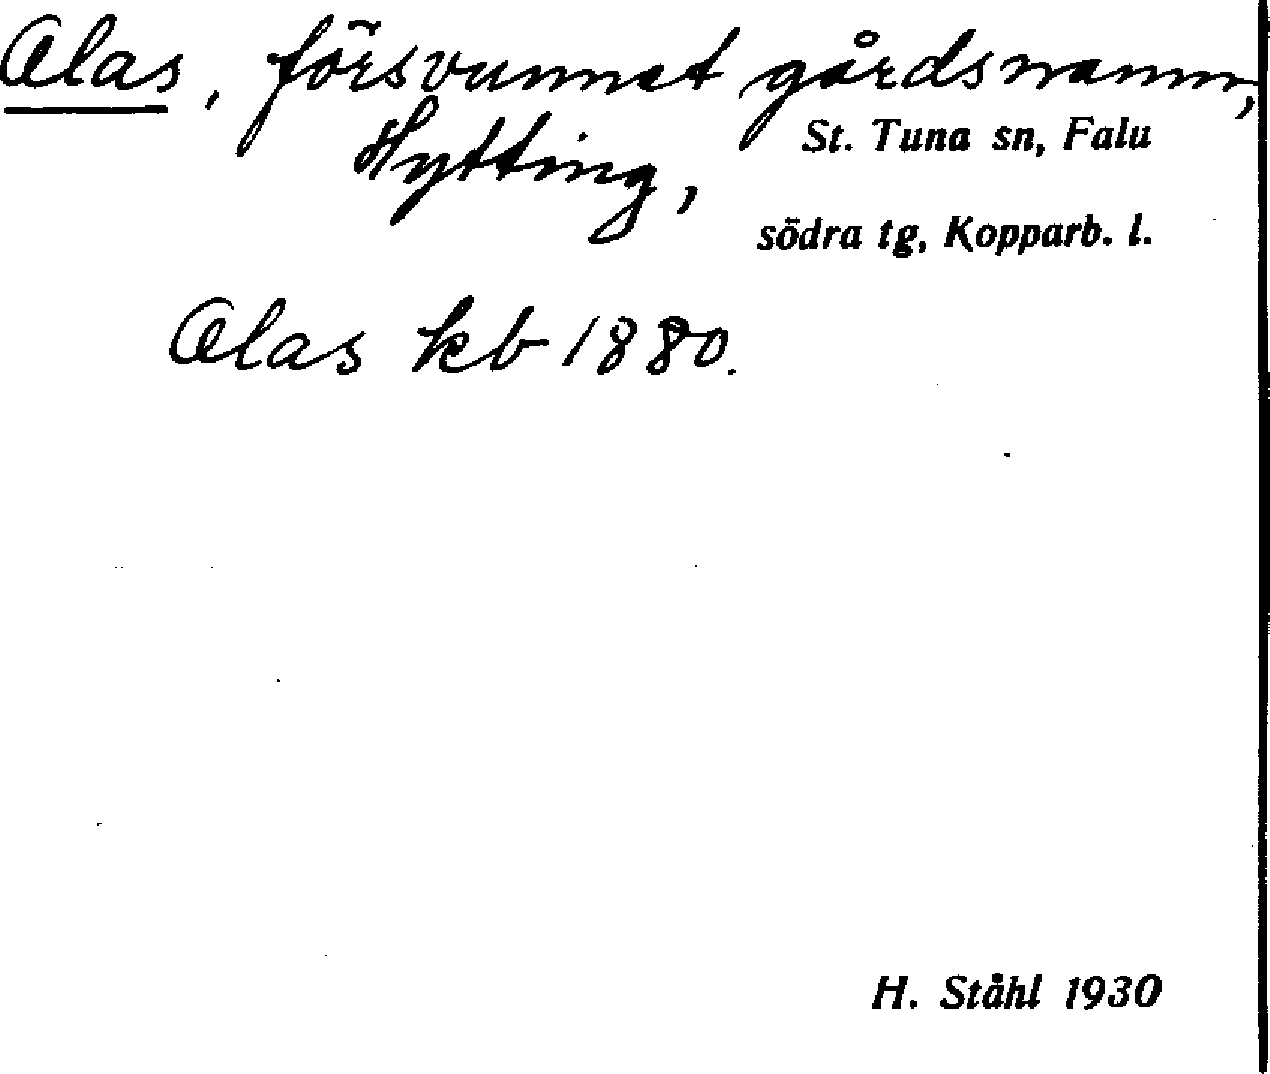 Olas, försvunnet gårdsnamn,
Hytting, St. Tuna sn, Falu
södra tg, Kopparb. l.
Olas kb 1880.
H. Ståhl 1930